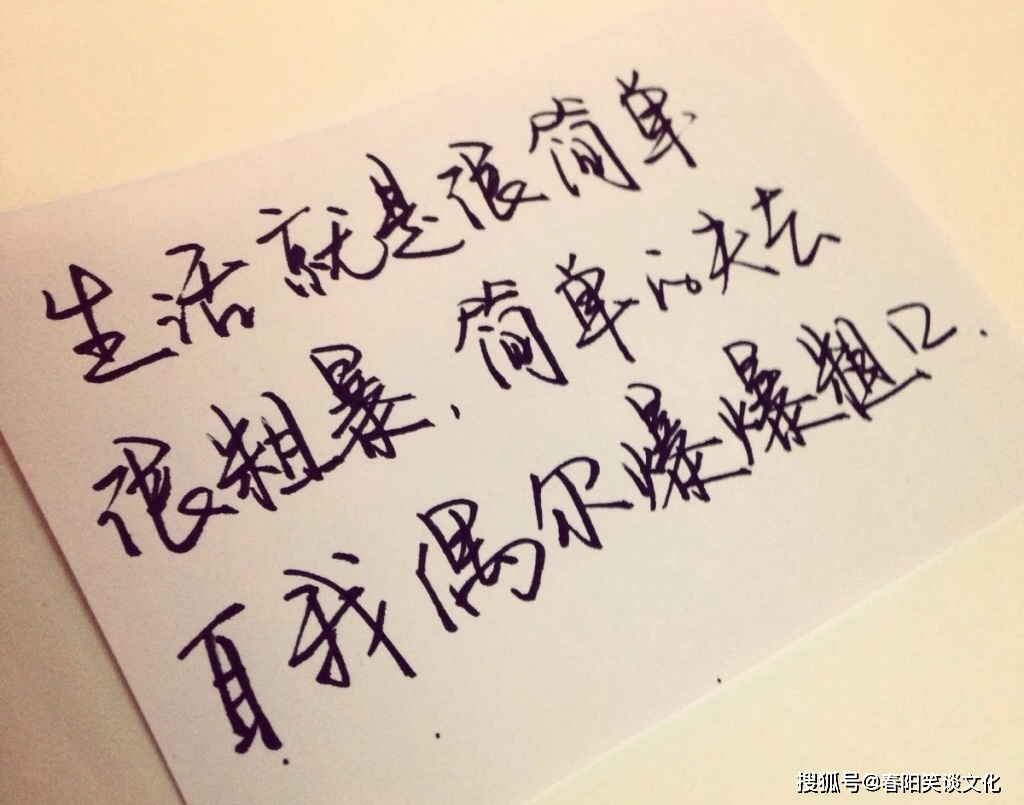 生活就是很简单
很粗暴,简单的去
我偶尔爆爆粗口.
搜狐号@春阳笑谈文化